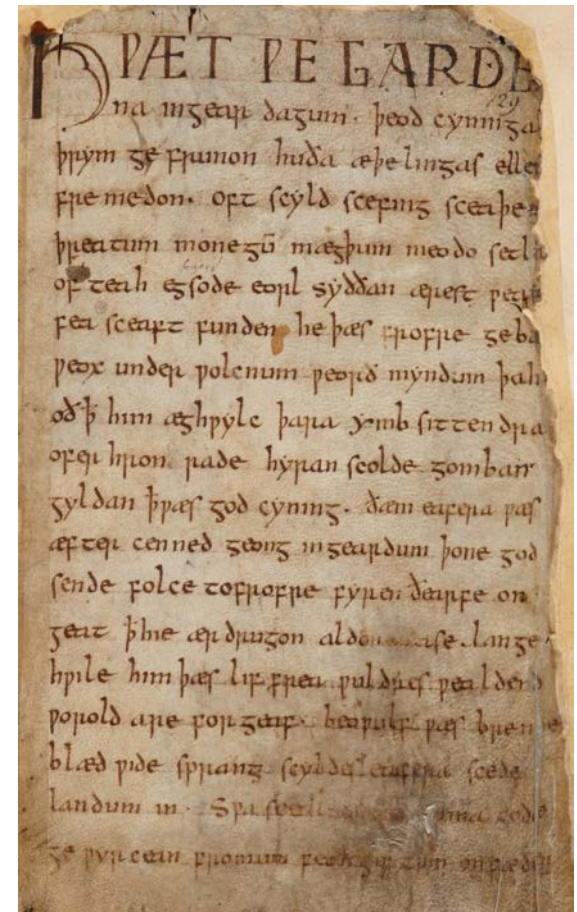 HǷÆT ǷE GARDE
129
na ingear dagum. þeod cyninga
þrym ge frunon huða æþelingas elle
fre medon. oft scyld scefing sceaþe
þreatum monegū mægþum meodo setla
of teah egsode eorl syððan ærest ƿear
fea sceaft funden he þæs frofre geba
ƿeox under ƿolcnum ƿeorð myndum þah
oð ꝥ him æghƿylc þara ymb sittendra
ofer hron rade hyran scolde gomban
gyldan ꝥ ƿæs god cyning. ðæm eafera ƿæs
æfter cenned geong ingeardum þone god
sende folce tofrofre fyren ðearfe on
geat ꝥ hie ær drugon lange
hƿile him þæs lif frea ƿuldres ƿealdend
ƿorold are for geaf. beoƿulf ƿæs breme
blæd ƿide sprang scyldes eafera scede
landum in. Sƿa
ge ƿyrcean fromum feoh giftum